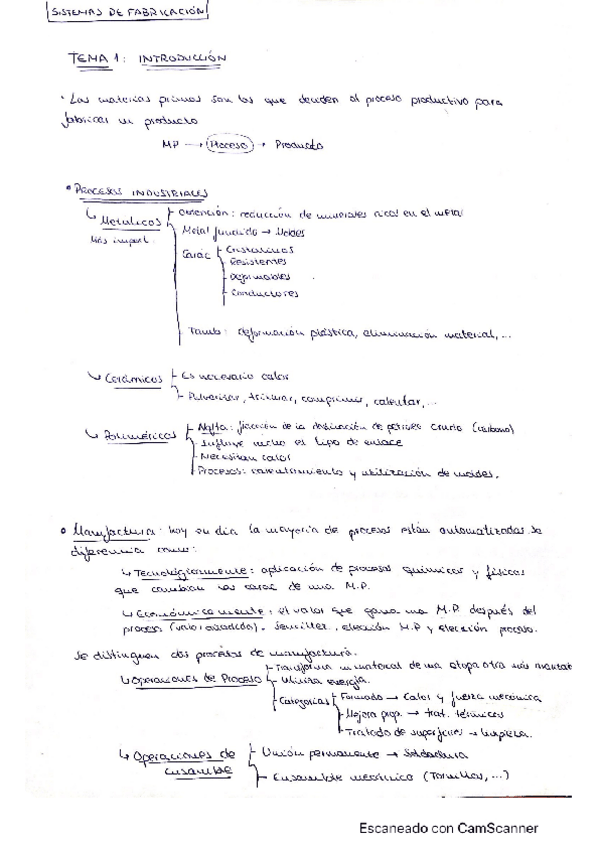 SISTEMAS DE FABRICACIÓN
TEMA 1: INTRODUCCIÓN
· Las materias primas son las que deciden el proceso productivo para
fabricar un producto
MP → Proceso → Producto
• PROCESOS INDUSTRIALES
↳ Metálicos
Más import.
Obtención: reducción de minerales ricos en el metal
Metal fundido → Moldes
Carác
Cristalinos
Resistentes
Deformables
Conductores
Tamb: deformación plástica, eliminación material, ...
↳ Cerámicos
Es necesario calor
Pulverizar, triturar, comprimir, calentar, ...
↳ Poliméricos
Nafta: fracción de la destilación de petróleo crudo (carbono)
Influye mucho el tipo de enlace
Necesitan calor
Procesos: y utilización de moldes.
• Manufactura: hoy en día la mayoría de procesos están automatizados. Se
diferencia como:
↳ Tecnológicamente: aplicación de procesos químicos y físicos
que cambian las carac de una M.P.
↳ Económicamente: el valor que gana una M.P. después del
proceso (valor añadido). Sencillez, elección M.P y elección proceso.
Se distinguen dos procesos de manufactura.
↳ Operaciones de Proceso
Transforma un material de una etapa otra más
Utiliza energía.
Categorías
Formado → Calor y fuerza mecánica
Mejora prop. → trat. térmicos
Tratado de superficies → limpieza.
↳ Operaciones de
Ensamble
Unión permanente → Soldadura
Ensamble mecánico (Tornillos, ...)
Escaneado con CamScanner